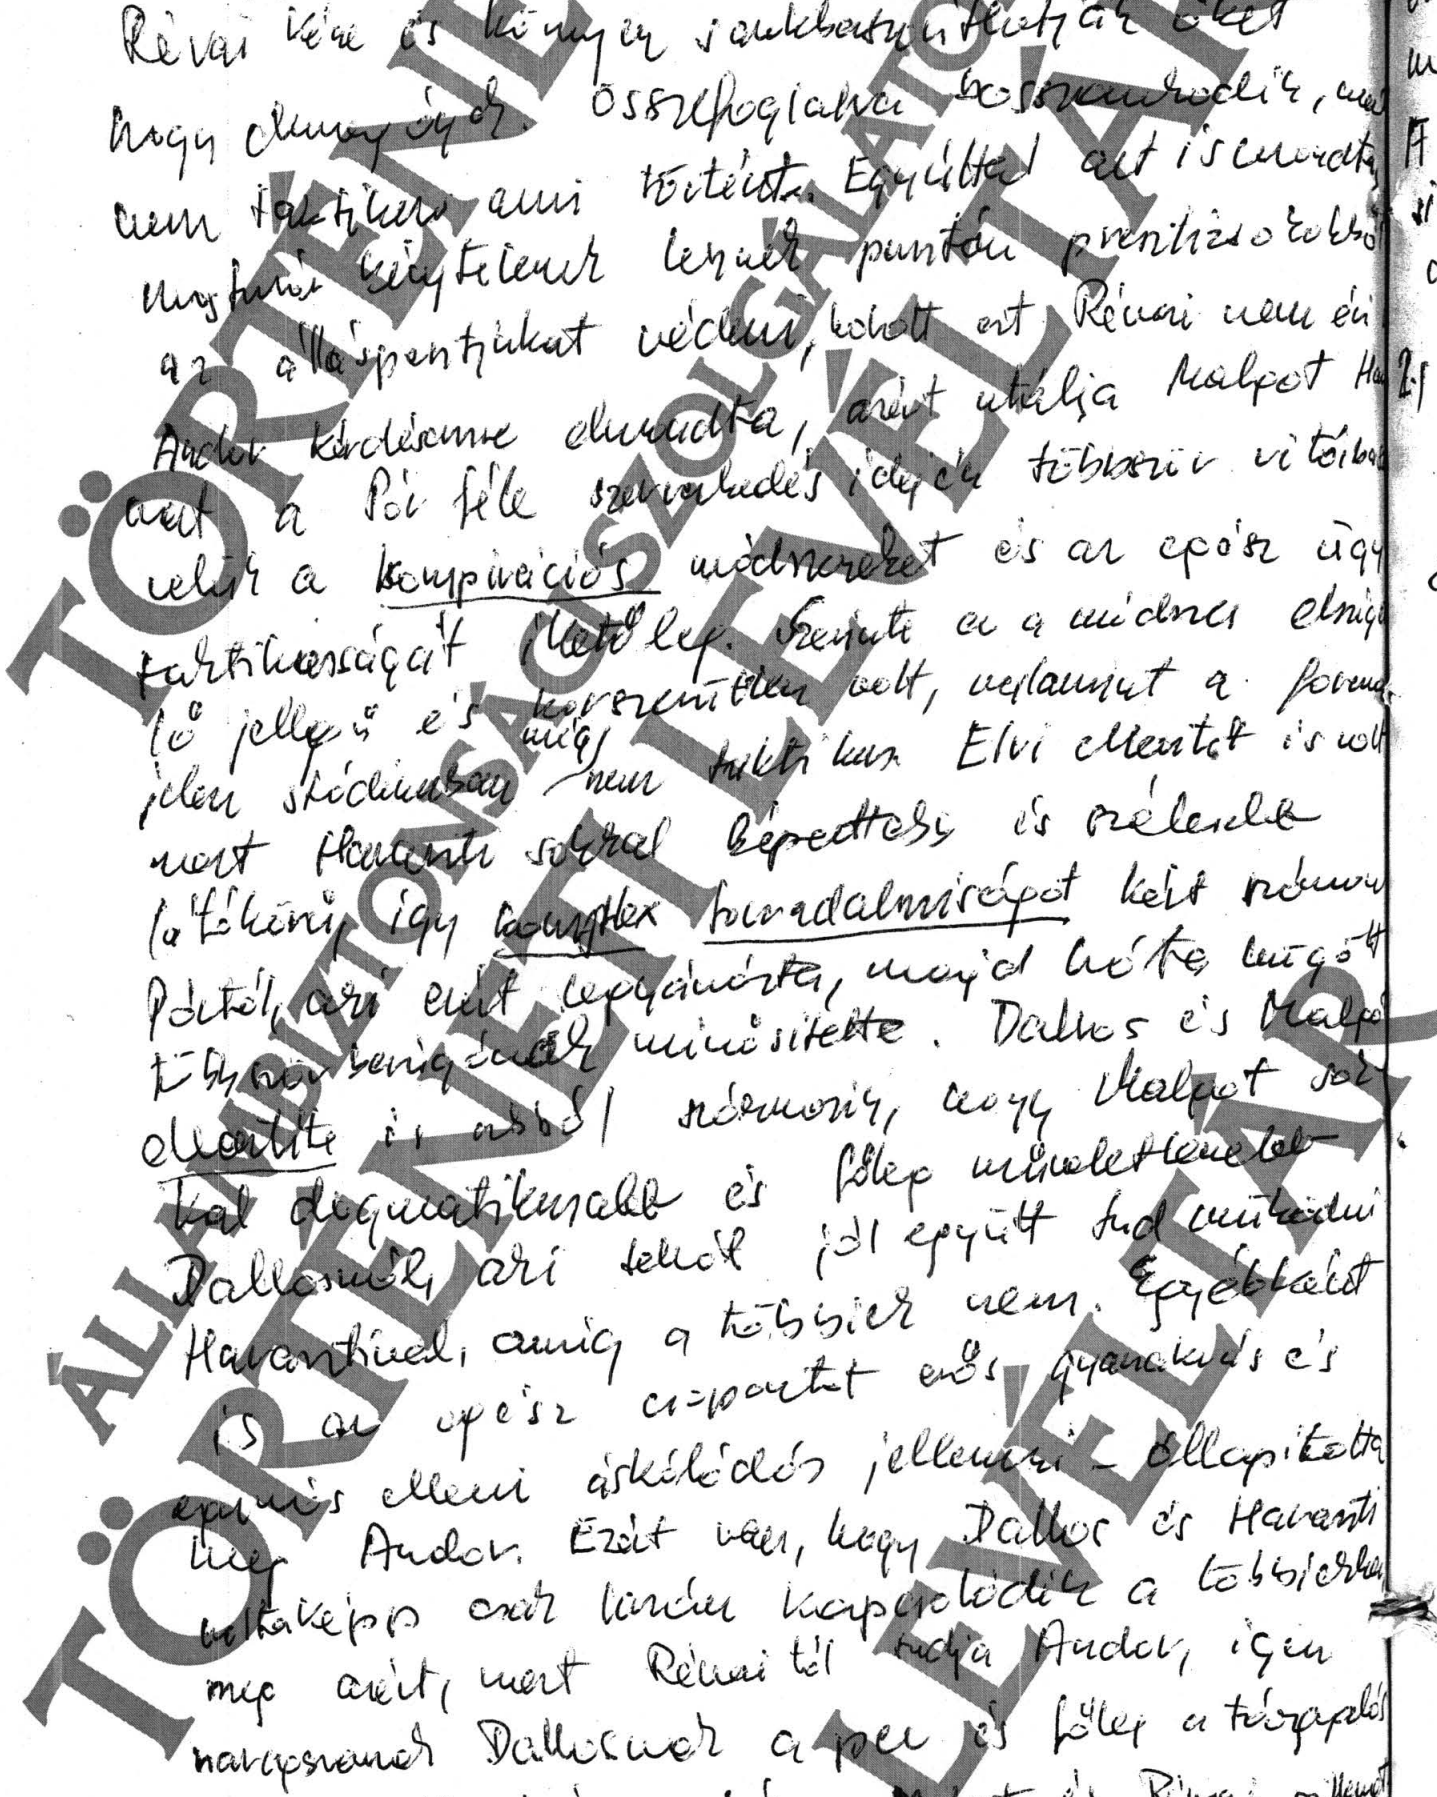 Révai kéne és könnyen sarokbaszoríthatják őket
hogy elmenjenek. Összefoglalva bosszankodik, mert
nem taktikus ami történt. Egyúttal azt is mondta
kénytelenek lesznek pusztán presztizsokokból
az álláspontjukat védeni, holott ezt Révai nem érti
Andor kérdésemre elmondta, azért utálja Malgot Har
mert a Pór féle szervezkedés idején többször vitáiban
velük a konspirációs módszereket és az egész ügy
taktikusságát illetőleg. Szerinte ez a módszer elszige
lő jellegű és korszerűtlen volt, valamint a forrad.
jelen stádiumban még nem taktikus. Elvi ellentét is volt
mert Haraszti sokkal képzettebb és szélesebb
látókörű, így komplex forradalmiságot kért számon
Pórtól, aki ezért legyávázta, majd háta mögött
többször beugrónak minősitette. Dallos és Malgo
ellentéte is abból származik, hogy Malgot sok-
kal dogmatikusabb és főleg műveletlenebb
Dallosnál, aki tehát jól együtt tud működni
Harasztival, amíg a többiek nem. Egyébként
is az egész csoportot erős gyanakvás és
egymás elleni áskálódás jellemzi – állapitotta
meg Andor. Ezért van, hogy Dallos és Haraszti
voltaképp csak lazán kapcsolódik a többiekhez
meg azért, mert Révaitól tudja Andor, igen
Dallosnak a per és főleg a tárgyalás
Révai
TÖRTÉNETI LEVÉLTÁR
ÁLLAMBIZTONSÁGI SZOLGÁLATOK
TÖRTÉNETI LEVÉLTÁRA
LEVÉLTÁR